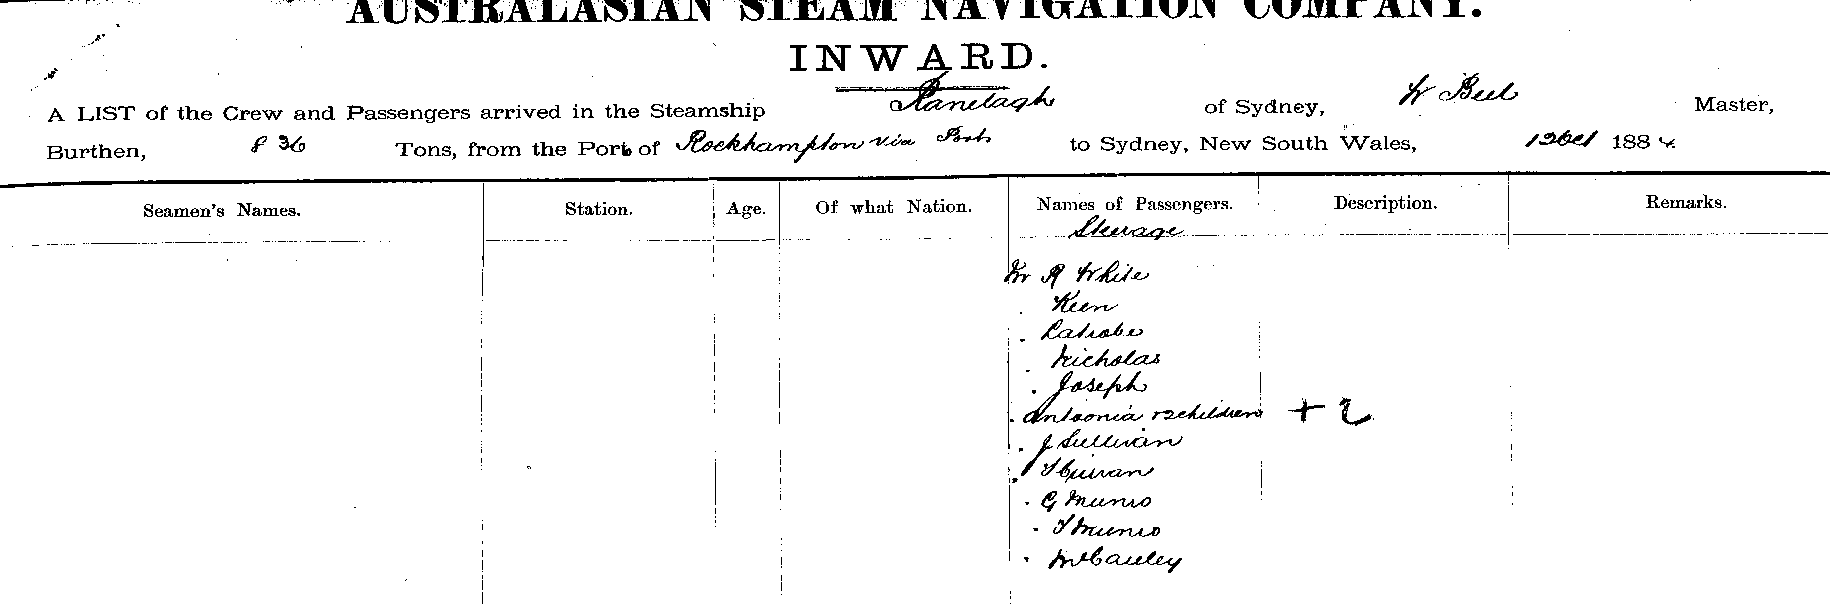 AUSTRALASIAN STEAM NAVIGATION COMPANY.
INWARD.
A LIST of the Crew and Passengers arrived in the Steamship Ranelagh of Sydney, W Beel Master,
Burthen, 836 Tons, from the Port of Rockhampton via Ports to Sydney, New South Wales, 13 Oct 1884
Seamen's Names. Station. Age. Of what Nation. Names of Passengers. Description. Remarks.
Steerage
Mr R White
. Keen
. Latrobe
. Nicholas
. Joseph
. Antoonia & 2 children + 2
. J Sullivan
. T Curran
. G Munro
. T Munro
. McCauley